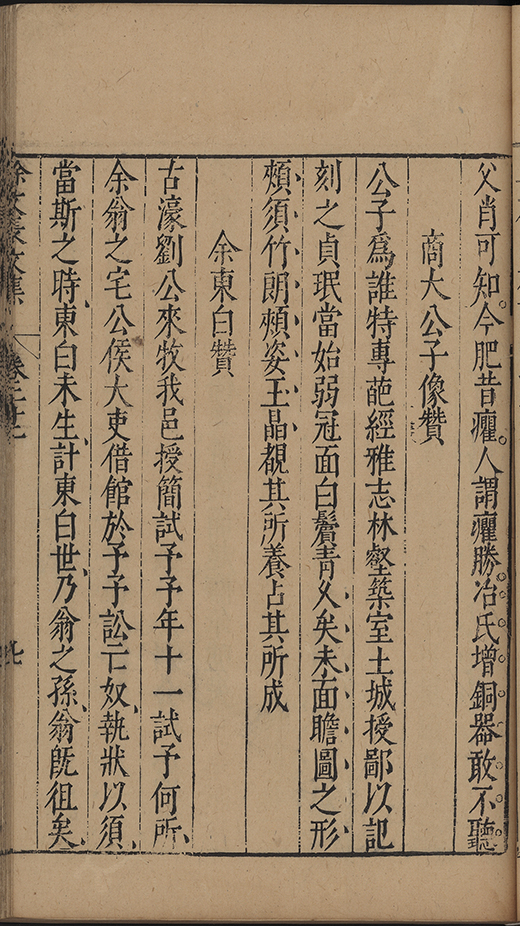 父肖可知今肥昔癯人謂癯勝冶氏增銅器敢不聽
商大公子像贊
公子爲誰特專葩經雅志林壑築室土城授鄙以記
刻之貞珉當始弱冠面白鬢青久矣未面瞻圖之形
頰須竹朗頰姿玉晶覩其所養占其所成
余東白贊
古濠劉公來牧我邑授簡試予予年十一試予何所
余翁之宅公侯大吏借館於予予訟亡奴執狀以須
當斯之時東白未生計東白世乃翁之孫翁旣徂矣
徐文長文集 卷之二十二 七